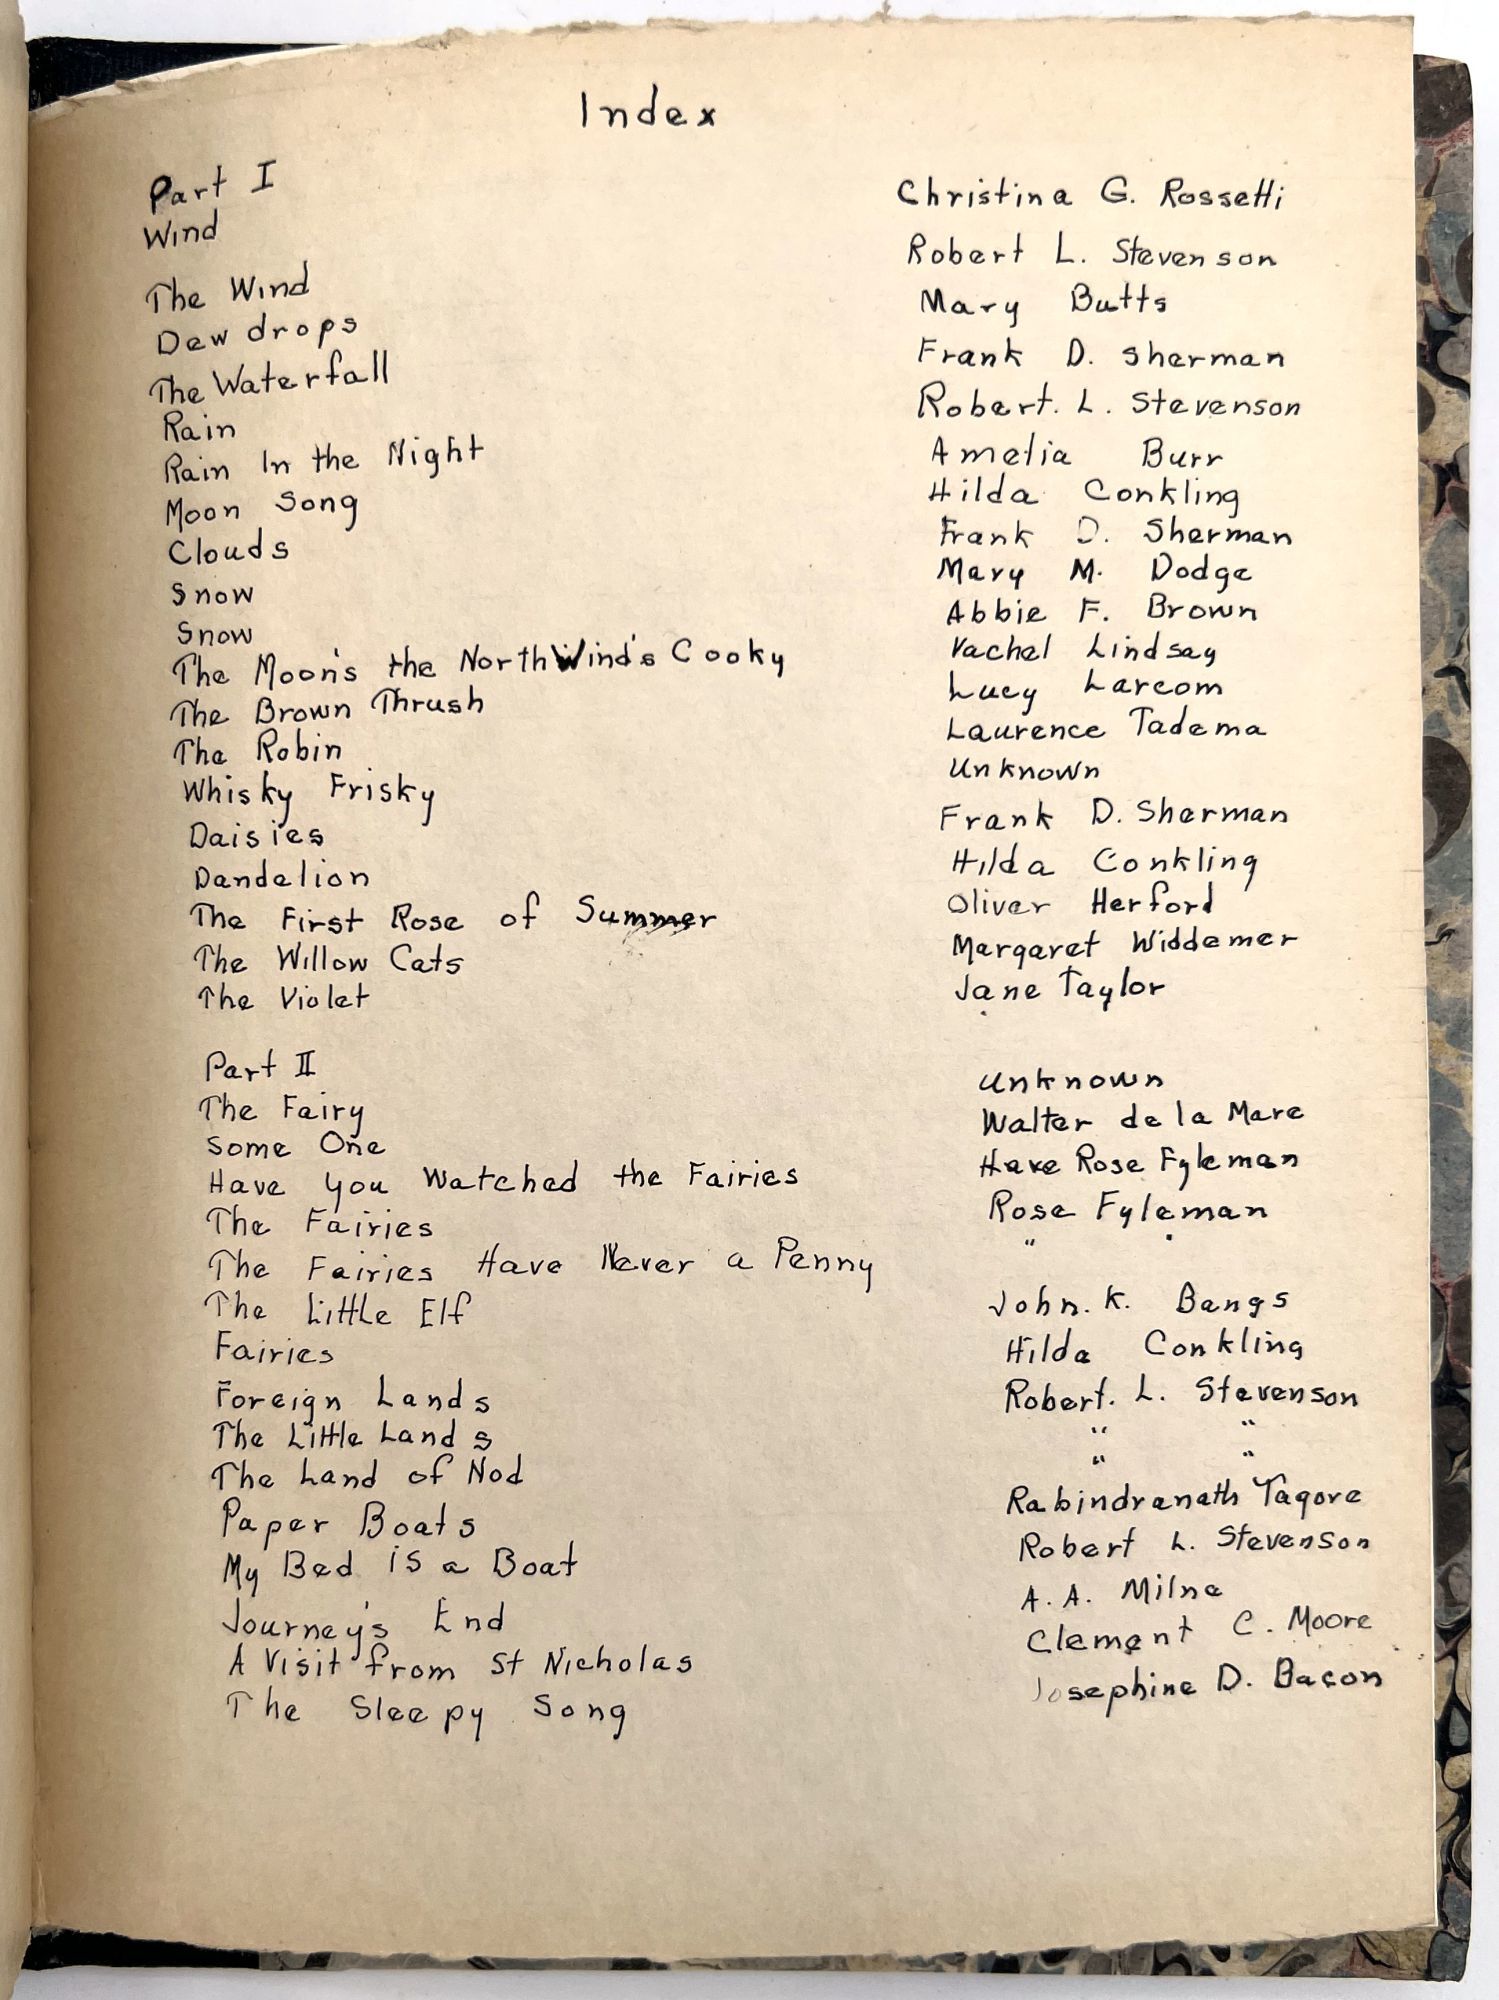 Index
Part I
Wind Christina G. Rossetti
The Wind Robert L. Stevenson
Dewdrops Mary Butts
The Waterfall Frank D. Sherman
Rain Robert. L. Stevenson
Rain In the Night Amelia Burr
Moon Song Hilda Conkling
Clouds Frank D. Sherman
Snow Mary M. Dodge
Snow Abbie F. Brown
The Moon's the North Wind's Cooky Vachel Lindsay
The Brown Thrush Lucy Larcom
The Robin Laurence Tadema
Whisky Frisky Unknown
Daisies Frank D. Sherman
Dandelion Hilda Conkling
The First Rose of Summer Oliver Herford
The Willow Cats Margaret Widdemer
The Violet Jane Taylor
Part II
The Fairy Unknown
Some One Walter de la Mare
Have you Watched the Fairies Have Rose Fyleman
The Fairies Rose Fyleman
The Fairies Have Never a Penny "
The Little Elf John. K. Bangs
Fairies Hilda Conkling
Foreign Lands Robert. L. Stevenson
The Little Lands " "
The Land of Nod " "
Paper Boats Rabindranath Tagore
My Bed is a Boat Robert L. Stevenson
Journey's End A. A. Milne
A Visit from St Nicholas Clement C. Moore
The Sleepy Song Josephine D. Bacon